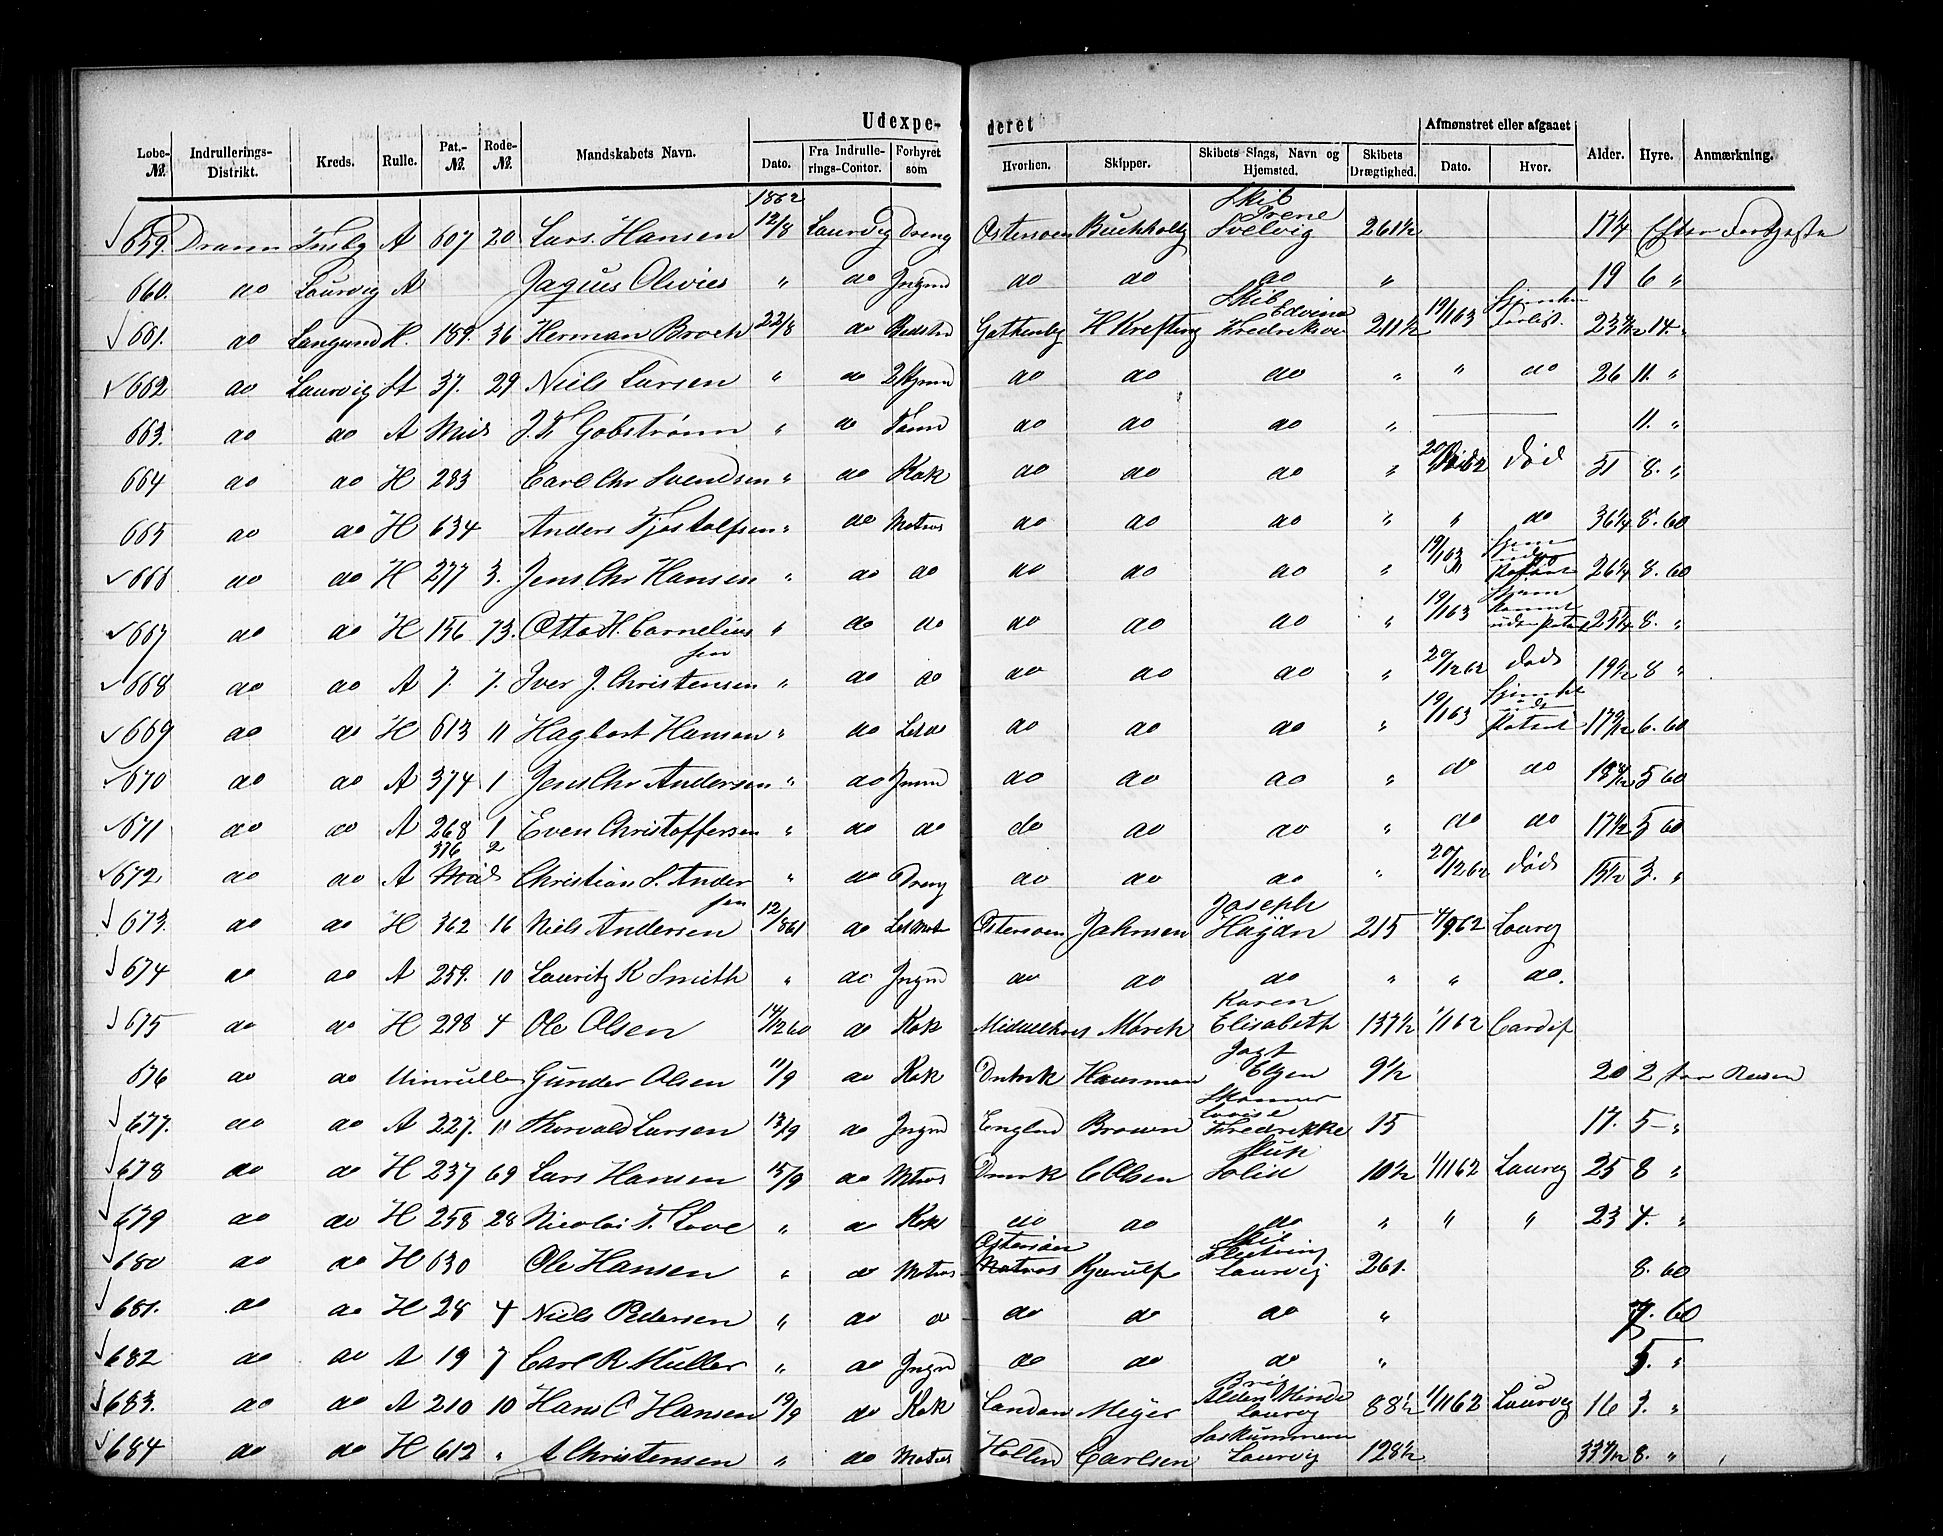 Udexpe- deret
Løbe-№ Indrullerings-Distrikt. Kreds. Rulle. Pat.-№ Rode-№ Mandskabets Navn. Dato. Fra Indrullerings-Contor. Forhyret som Hvorhen. Skipper. Skibets Sings, Navn og Hjemsted. Skibets Drægtighed. Afmønstret eller afgaaet Dato. Hvor. Alder. Hyre. Anmærkning.
1862
659. Dramn A 607 20 Lars. Hansen 12/8 Laurvig Dreng Østersøen Buchholtz Skib Irene Svelvig 261½ 17¼ Efter
660. do Laurvig A Jaqus Olivies " do Jngmd do do do " 19 6 "
661. do Langsund H. 189. 36 Herman Broch 22/8 do Gothenbg H Krefting Skib Edvina Fredriksv 211½ 19/1 63 forlist. 23 14. "
662 do Laurvig H 37. 29 Niels Larsen " do do do do " " do 26 11. "
663. do do A J. F Gobstrømm " do Tømm do do do " 11. "
664 do do H 283 Carl Chr Svendsen " do Kok do do do " 20/12 62 død 51 8. "
665 do do H 634 Anders Tjostolfsen " do Matros do do do " " do 36¼ 8. 60
666 do do H 277 3. Jens Chr Hansen " do do do do do " 19/1 63 26¼ 8. 60
667 do do H 156 73. Otto H. Corneliussen " do do do do do " 19/1 63 uden Patent 25¼ 8. "
668 do do A 7. 7. Iver J. Christensen " do do do do do " 20/12 62 døds 19½ 8 "
669 do do H 613 11 Hagbart Hansen " do Letm do do do " 19/1 63 Patent 6. 60
670 do do A 374 1 Jens Chr Andersen " do Jnmd do do do " do do 5 60
671 do do A 268 1 Even Christoffersen " do do do do do " do do 17½ 5 60
672 do do A 376 2 Christian S. Andersen " do Dreng do do do " 20/12 62 døds 15½ 3. "
673. do do H 362 16 Niels Andersen 12/8 61 do Let Mat Østersøen Jahnsen Joseph Haydn 215 4/9 62 Laurvg
674 do do A 259. 10 Lauritz K Smith " do Jngmd do do do " " do.
675 do do H 298 4 Ole Olsen 14/12 60 do Kok Middelhavet Mørch Karen Elisabeth 137½ 1/1 62 Cardif
676 do do Uinrullet Gunder Olsen 11/9 do Kok Dmark Hansman Jagt Elgen 9½ 20 2 for Reisen
677. do do A 227. 11 Thorvald Larsen 13/9 do Jngmd England Brown Lovise Fredrikke 15 17. 5 "
678 do do H 237 69 Lars Hansen 15/9 do Mtros Dmark C Olsen Solid 10½ 1/11 62 Laurvg 25 8 "
679 do do H 258 28 Nicolai T. Love " do Kok do do do " " " 23 4. "
680 do do H 630 Ole Hansen " do Mtros Østersøen Matros Kjerulf Skib Laurvig 261. 8. 60
681. do do H 28 4 Niels Pedersen " do do do do do " 7. 60
682 do do A 19 7 Carl R Müller " do Jngmd do do do " 5. "
683. do do A 210 10 Hans C Hansen 19/9 do Kok London Meyer Brig Alden Minde Laurvg 88½ 1/11 62 Laurvig 16 3. "
684 do do H 612 " A Christensen " do Matros Hollnd Carlsen Laurvig 128½ 8. "